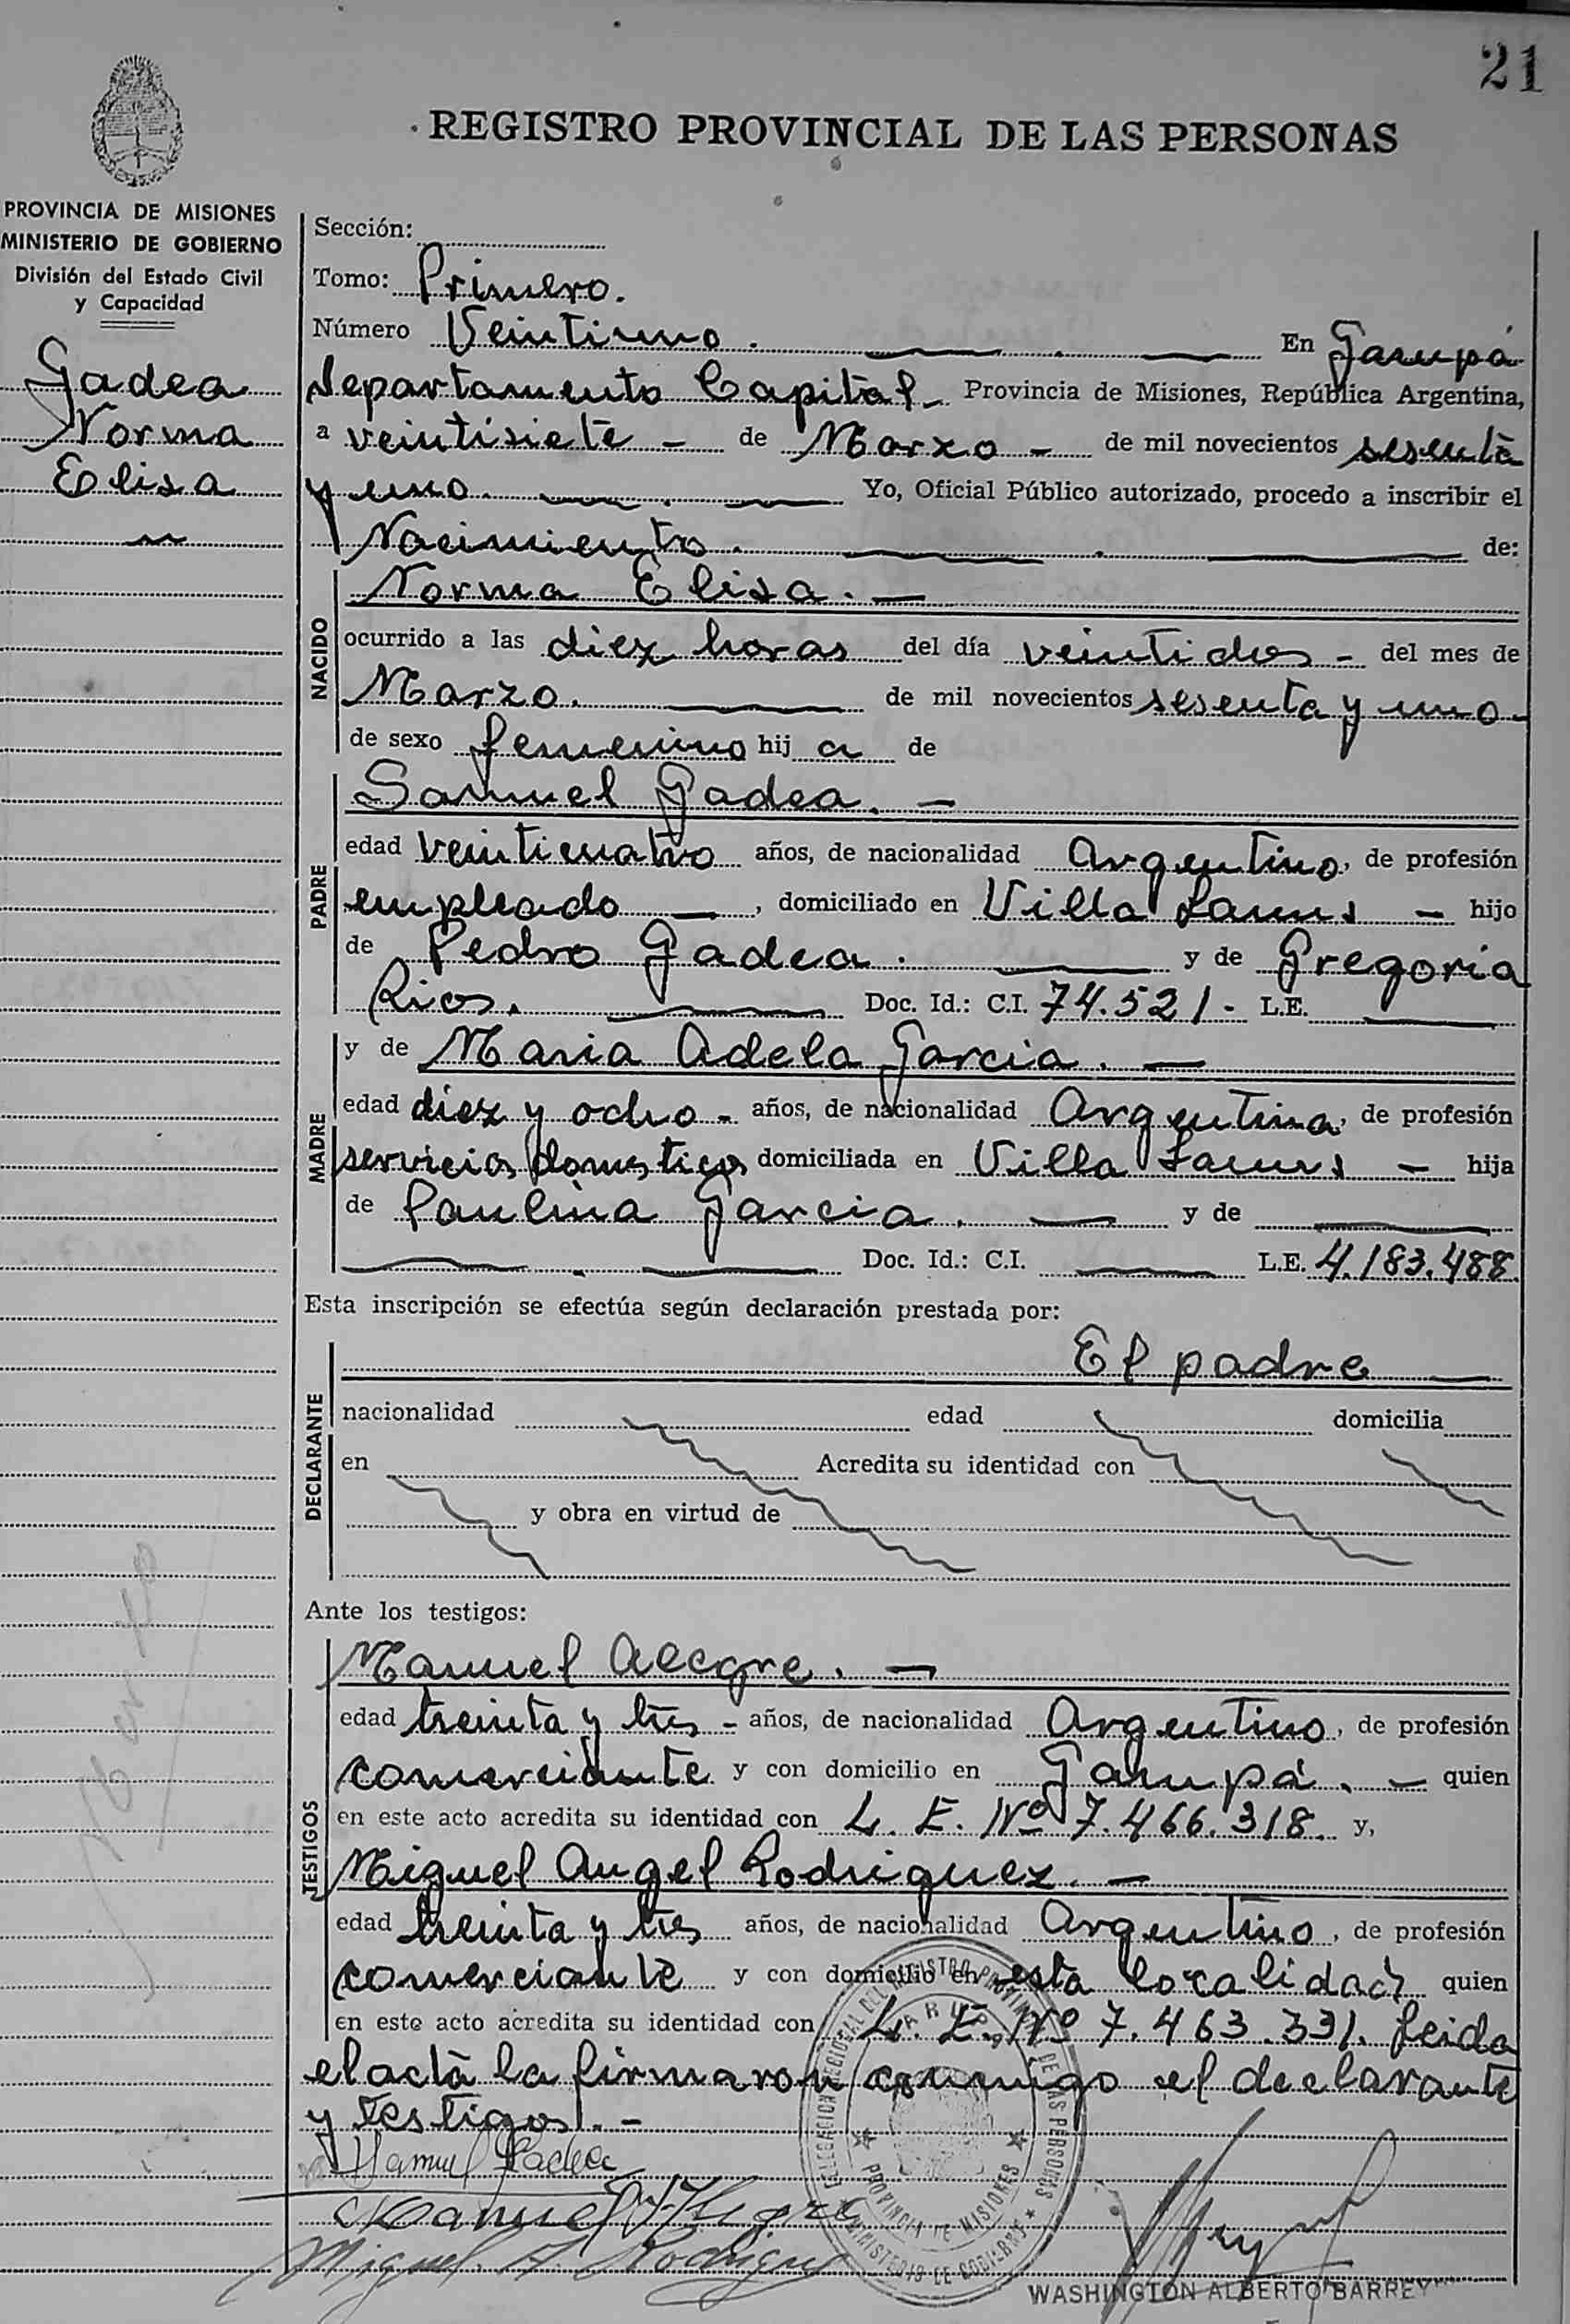 21
REGISTRO PROVINCIAL DE LAS PERSONAS
PROVINCIA DE MISIONES
MINISTERIO DE GOBIERNO
División del Estado Civil
y Capacidad
Gadea
Norma
Elisa
Sección:
Tomo: Primero.
Número Veintiuno. En Garupá
Departamento Capital Provincia de Misiones, República Argentina,
a veintisiete - de Marzo - de mil novecientos sesenta
y uno. Yo, Oficial Público autorizado, procedo a inscribir el
Nacimiento. de:
NACIDO
Norma Elisa. -
ocurrido a las diez horas del día veintidos - del mes de
Marzo. de mil novecientos sesenta y uno -
de sexo femenino hij a de
PADRE
Samuel Gadea. -
edad veinticuatro años, de nacionalidad Argentino, de profesión
empleado -, domiciliado en Villa Lanus - hijo
de Pedro Gadea. y de Gregoria
Rios. Doc. Id.: C.I. 74.521 - L.E.
MADRE
y de Maria Adela Garcia. -
edad diez y ocho - años, de nacionalidad Argentina, de profesión
servicios domesticos domiciliada en Villa Lanus - hija
de Paulina Garcia. - y de
Doc. Id.: C.I. L.E. 4.183.488.
Esta inscripción se efectúa según declaración prestada por:
DECLARANTE
El padre
nacionalidad edad domicilia
en Acredita su identidad con
y obra en virtud de
Ante los testigos:
TESTIGOS
Manuel Alegre. -
edad treinta y tres - años, de nacionalidad Argentino, de profesión
comerciante y con domicilio en Garupá. - quien
en este acto acredita su identidad con L. E. Nº 7.466.318. y,
Miguel Angel Rodriguez. -
edad treinta y tres años, de nacionalidad Argentino, de profesión
comerciante y con domicilio en esta localidad quien
en este acto acredita su identidad con L. E. Nº 7.463.331. Leida
el acta la firmaron conmigo el declarante
y testigos. -
Samuel Gadea
Manuel Alegre
Miguel A. Rodriguez
PROVINCIA DE MISIONES
WASHINGTON ALBERTO BARREY